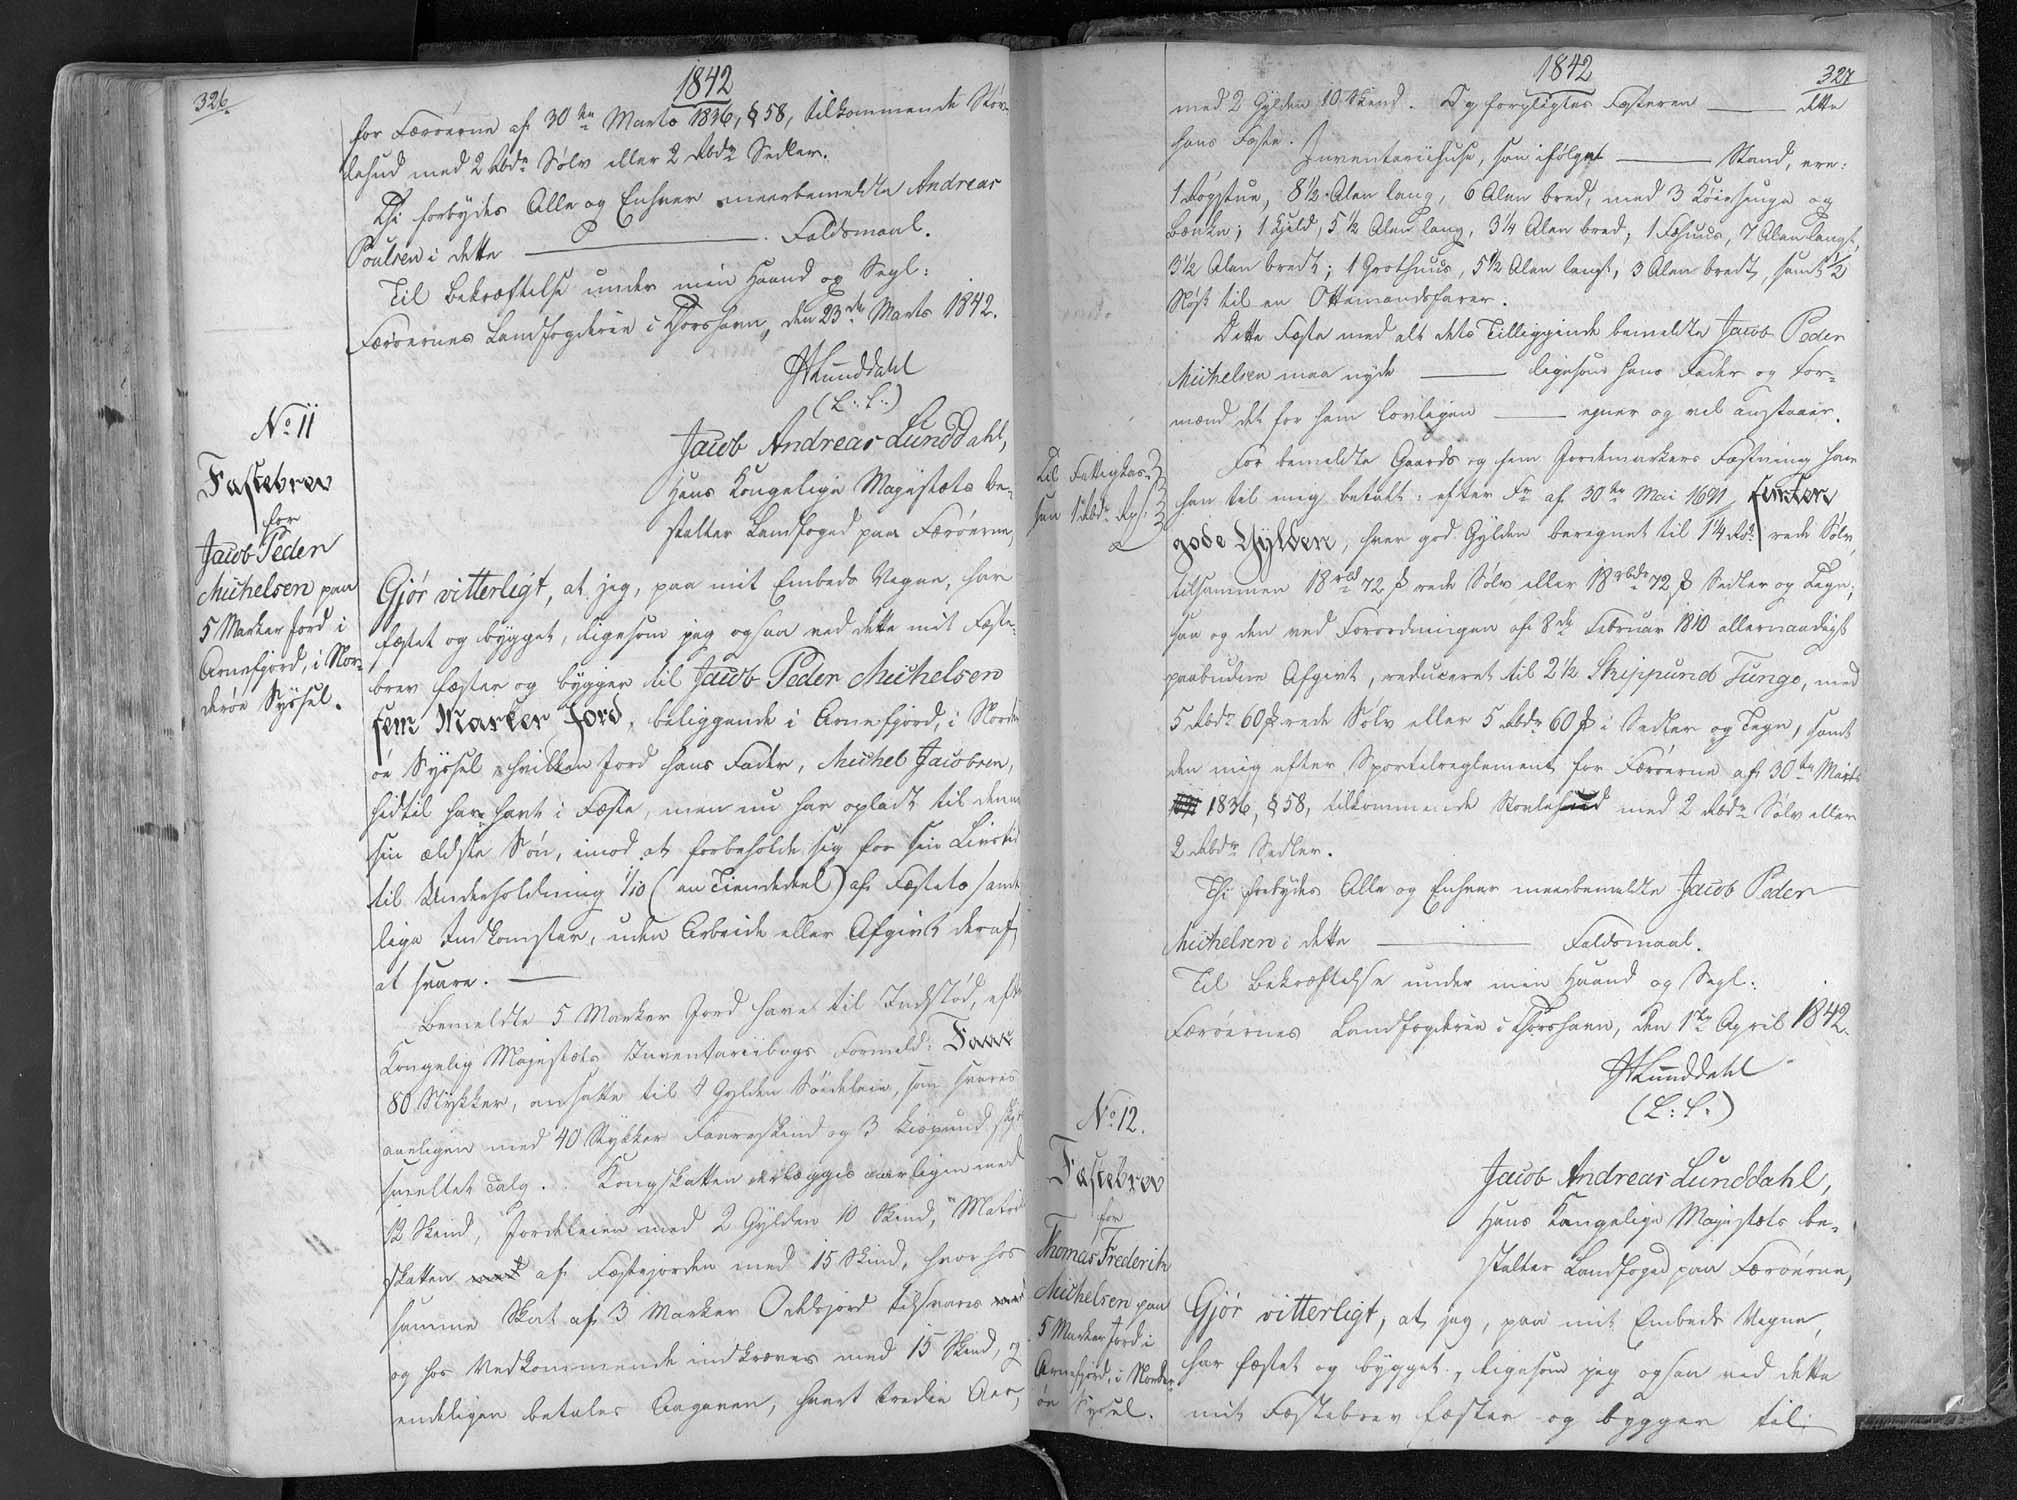 326.
1842
for Færöerne af 30te Marts 1836, § 58, tilkommende Stöv-
lehud med 2 Rbdr Sölv eller 2 Rbdr Sedler.
Thi forbydes Alle og Enhver meerbemeldte Andreas
Poulsen i dette — Faldsmaal.
Til Bekræftelse under min Haand og Segl:
Færöernes Landfogderie i Thorshavn, den 23de Marts 1842.
JALunddahl
(L: S:)
No 11
Fæstebrev
for
Jacob Peder
Michelsen paa
5 Marker Jord i
Arnefjord, i Nor-
deröe Syssel.
Jacob Andreas Lunddahl,
Hans Kongelige Majestæts be-
stalter Landfoged paa Færöerne,
Gjör vitterligt, at jeg, paa mit Embeds Vegne, har
fæstet og bygget, ligesom jeg ogsaa ved dette mit Fæste-
brev fæster og bygger til Jacob Peder Michelsen
fem Marker Jord, beliggende i Arnefjord, i Norder
öe Syssel, hvilken Jord hans Fader, Michel Jacobsen,
hidtil har havt i Fæste, men nu har opladt til denne
sin ældste Sön, imod at forbeholde sig for sin Livstid
til Underholdning 1/10 (en Tiendedeel) af Fæstets samt
lige Indkomster, uden Arbeide eller Afgivt deraf
at svare. —
Bemeldte 5 Marker Jord have til Indstöd, efter
Kongelig Majestæts Inventariibogs Formeld: Faar
80 Stykker, ansatte til 4 Gylden Söideleie, som svares
aarligen med 40 Stykker Faareskind og 3 Lispund
smeltet Talg. Kongskatten erlægges aarligen med
12 Skind, Jordeleien med 2 Gylden 10 Skind, Matrik
skatten med af Fæstejorden med 15 Skind, hvorhos
samme Skat af 3 Marker Odelsjord tilsvares med
og hos Vedkommende indkræves med 15 Skind, og
endeligen betales Tagaven, hvert tredie Aar,
1842
327
med 2 Gylden 10 Skind. Og forpligtes Fæsteren — dette
hans Fæste. Inventariihuse, som ifölget — Stand, ere:
1 Rögstue, 8 1/2 Alen lang, 6 Alen bred, med 3 Köiesenge og
Bænke; 1 Kjeld, 5 1/2 Alen lang, 3 1/4 Alen bred; 1 Fæhuus, 7 Alen langt,
3 1/2 Alen bredt; 1 Grothuus, 5 1/2 Alen langt, 3 Alen bredt, samt 1/2
Nöst til en Ottemandsfarer.
Dette Fæste med alt dets Tilliggende bemeldte Jacob Peder
Michelsen maa nyde — ligesom hans Fader og For-
mænd det for ham lovligen — egner og vel anstaaer.
Til Fattigkas-
sen 1 Rbdr Rp.
For bemeldte Gaards og fem Jordemarkers Fæstning har
han til mig betalt: efter Fr af 30te Mai 1691, femten
gode Gylden, hver god Gylden beregnet til 1 1/4 Rdr rede Sölv,
tilsammen 18 rbd 72 ß rede Sölv eller 18 rbdr 72 ß Sedler og Tegn;
saa og den ved Forordningen af 8de Februar 1810 allernaadigst
paabudne Afgivt, reduceret til 2 1/2 Skippund Tunge, med
5 Rbdr 60 ß rede Sölv eller 5 Rbdr 60 ß i Sedler og Tegn, samt
den mig efter Sportelreglement for Færöerne af 30te Marts
1836, § 58, tilkommende Stövlehud med 2 Rbdr Sölv eller
2 Rbdr Sedler.
Thi forbydes Alle og Enhver meerbemeldte Jacob Peder
Michelsen i dette — Faldsmaal.
Til Bekræftelse under min Haand og Segl:
Færöernes Landfogderie i Thorshavn, den 1te April 1842.
JALunddahl
(L: S:)
No 12.
Fæstebrev
for
Thomas Frederik
Michelsen paa
5 Marker Jord i
Arnefjord, i Norder-
öe Syssel.
Jacob Andreas Lunddahl,
Hans Kongelige Majestæts be-
stalter Landfoged paa Færöerne,
Gjör vitterligt, at jeg, paa mit Embeds Vegne,
har fæstet og bygget, ligesom jeg ogsaa ved dette
mit Fæstebrev fæster og bygger til